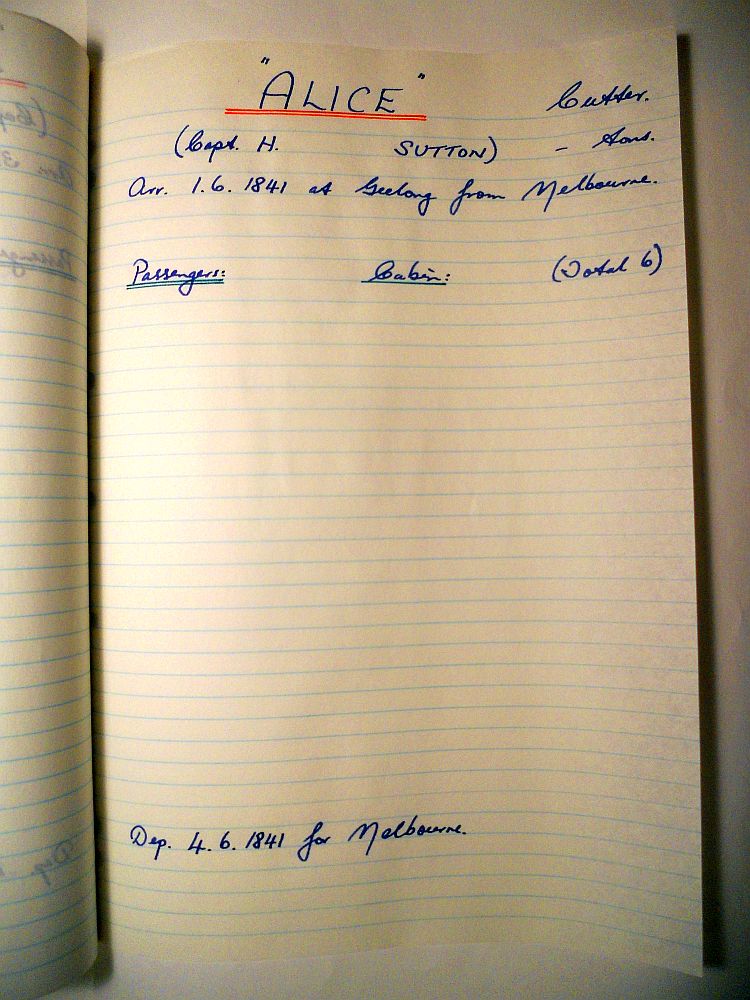 "ALICE" Cutter.
(Capt. H. SUTTON) - tons.
Arr. 1.6.1841 at Geelong from Melbourne.
Passengers: Cabin: (Total 6)
Dep. 4.6.1841 for Melbourne.